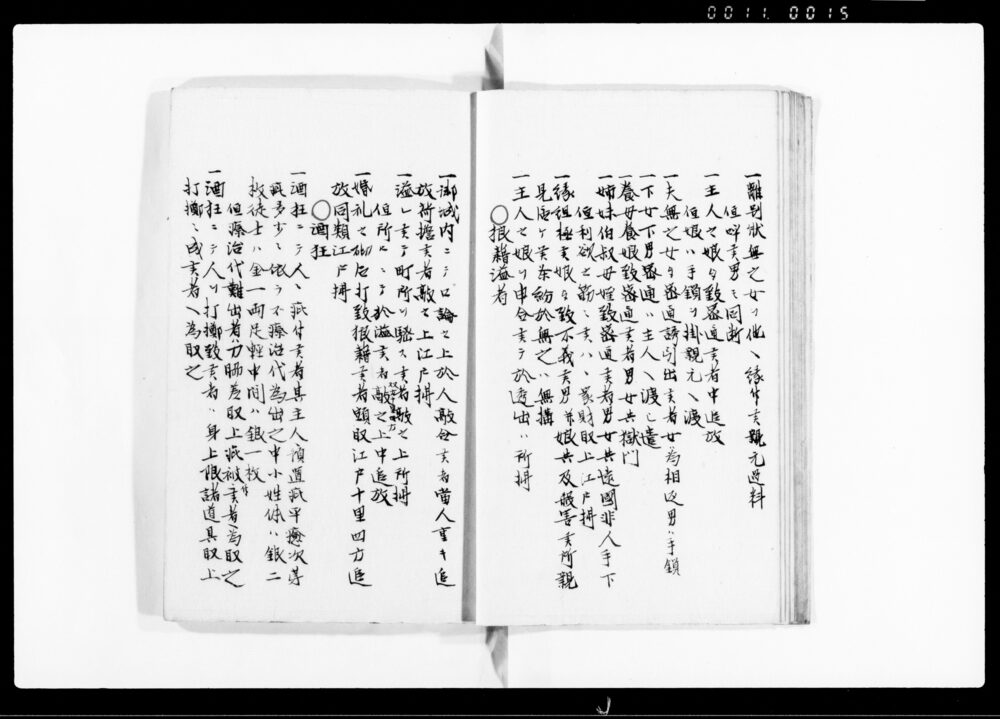 0011 0015
一離別状無之女ヲ他ヘ縁付候親元過料
但呼候男モ同断
一主人之娘ト致密通候者中追放
但娘ハ手鎖ヲ掛親元ヘ渡
一夫無之女ト密通誘引出候者女為相返男ハ手鎖
一下女下男密通ハ主人ヘ渡シ遣
一養母養娘致密通候者男女共獄門
一姉妹伯叔母姪致密通候者男女共遠国非人手下
一縁組極候娘ト致不義候男并娘共
一主人之娘ヲ申合候テ於連出ハ所拂
○狼藉溢者
一御城内ニテ口論之上於人敲合候者當人重キ追
放荷擔候者敲之上江戸拂
一溢レ候テ町所ヲ騒ス候者敲之上所拂
於溢候者敲之上中追放
一婚礼之砌石打致狼藉候者頭取江戸十里四方追
放同類江戸拂
○酒狂
一酒狂ニテ人ヘ疵付候者其主人預置疵平癒次第
疵多少ニ依ラス療治代為出之中小姓体ハ銀二
枚徒士ハ金一両足軽中間ハ銀一枚
但療治代難出者ハ刀脇差取上疵被付候者ヘ為取之
一酒狂ニテ人ヲ打擲致候者ハ身上限諸道具取上
打擲ニ成候者ヘ為取之